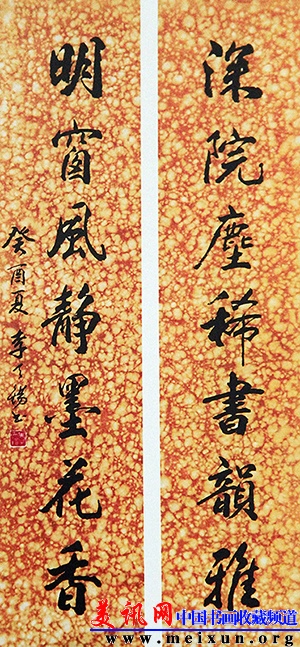 深院塵稀書韻雅
明窗風靜墨花香
癸酉夏 李
美讯网
中国书画收藏频道
www.meixun.org